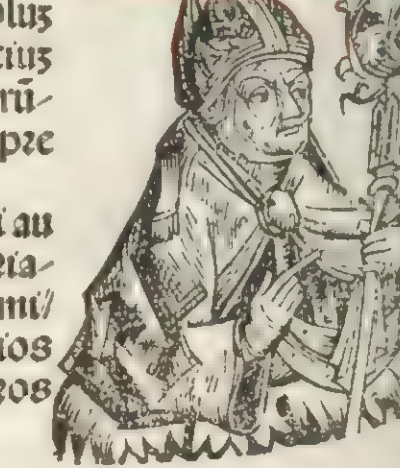 oluʒ
ciuʒ
rū⸗
pꝛe
i au
ria⸗
mi⸗
ios
ros